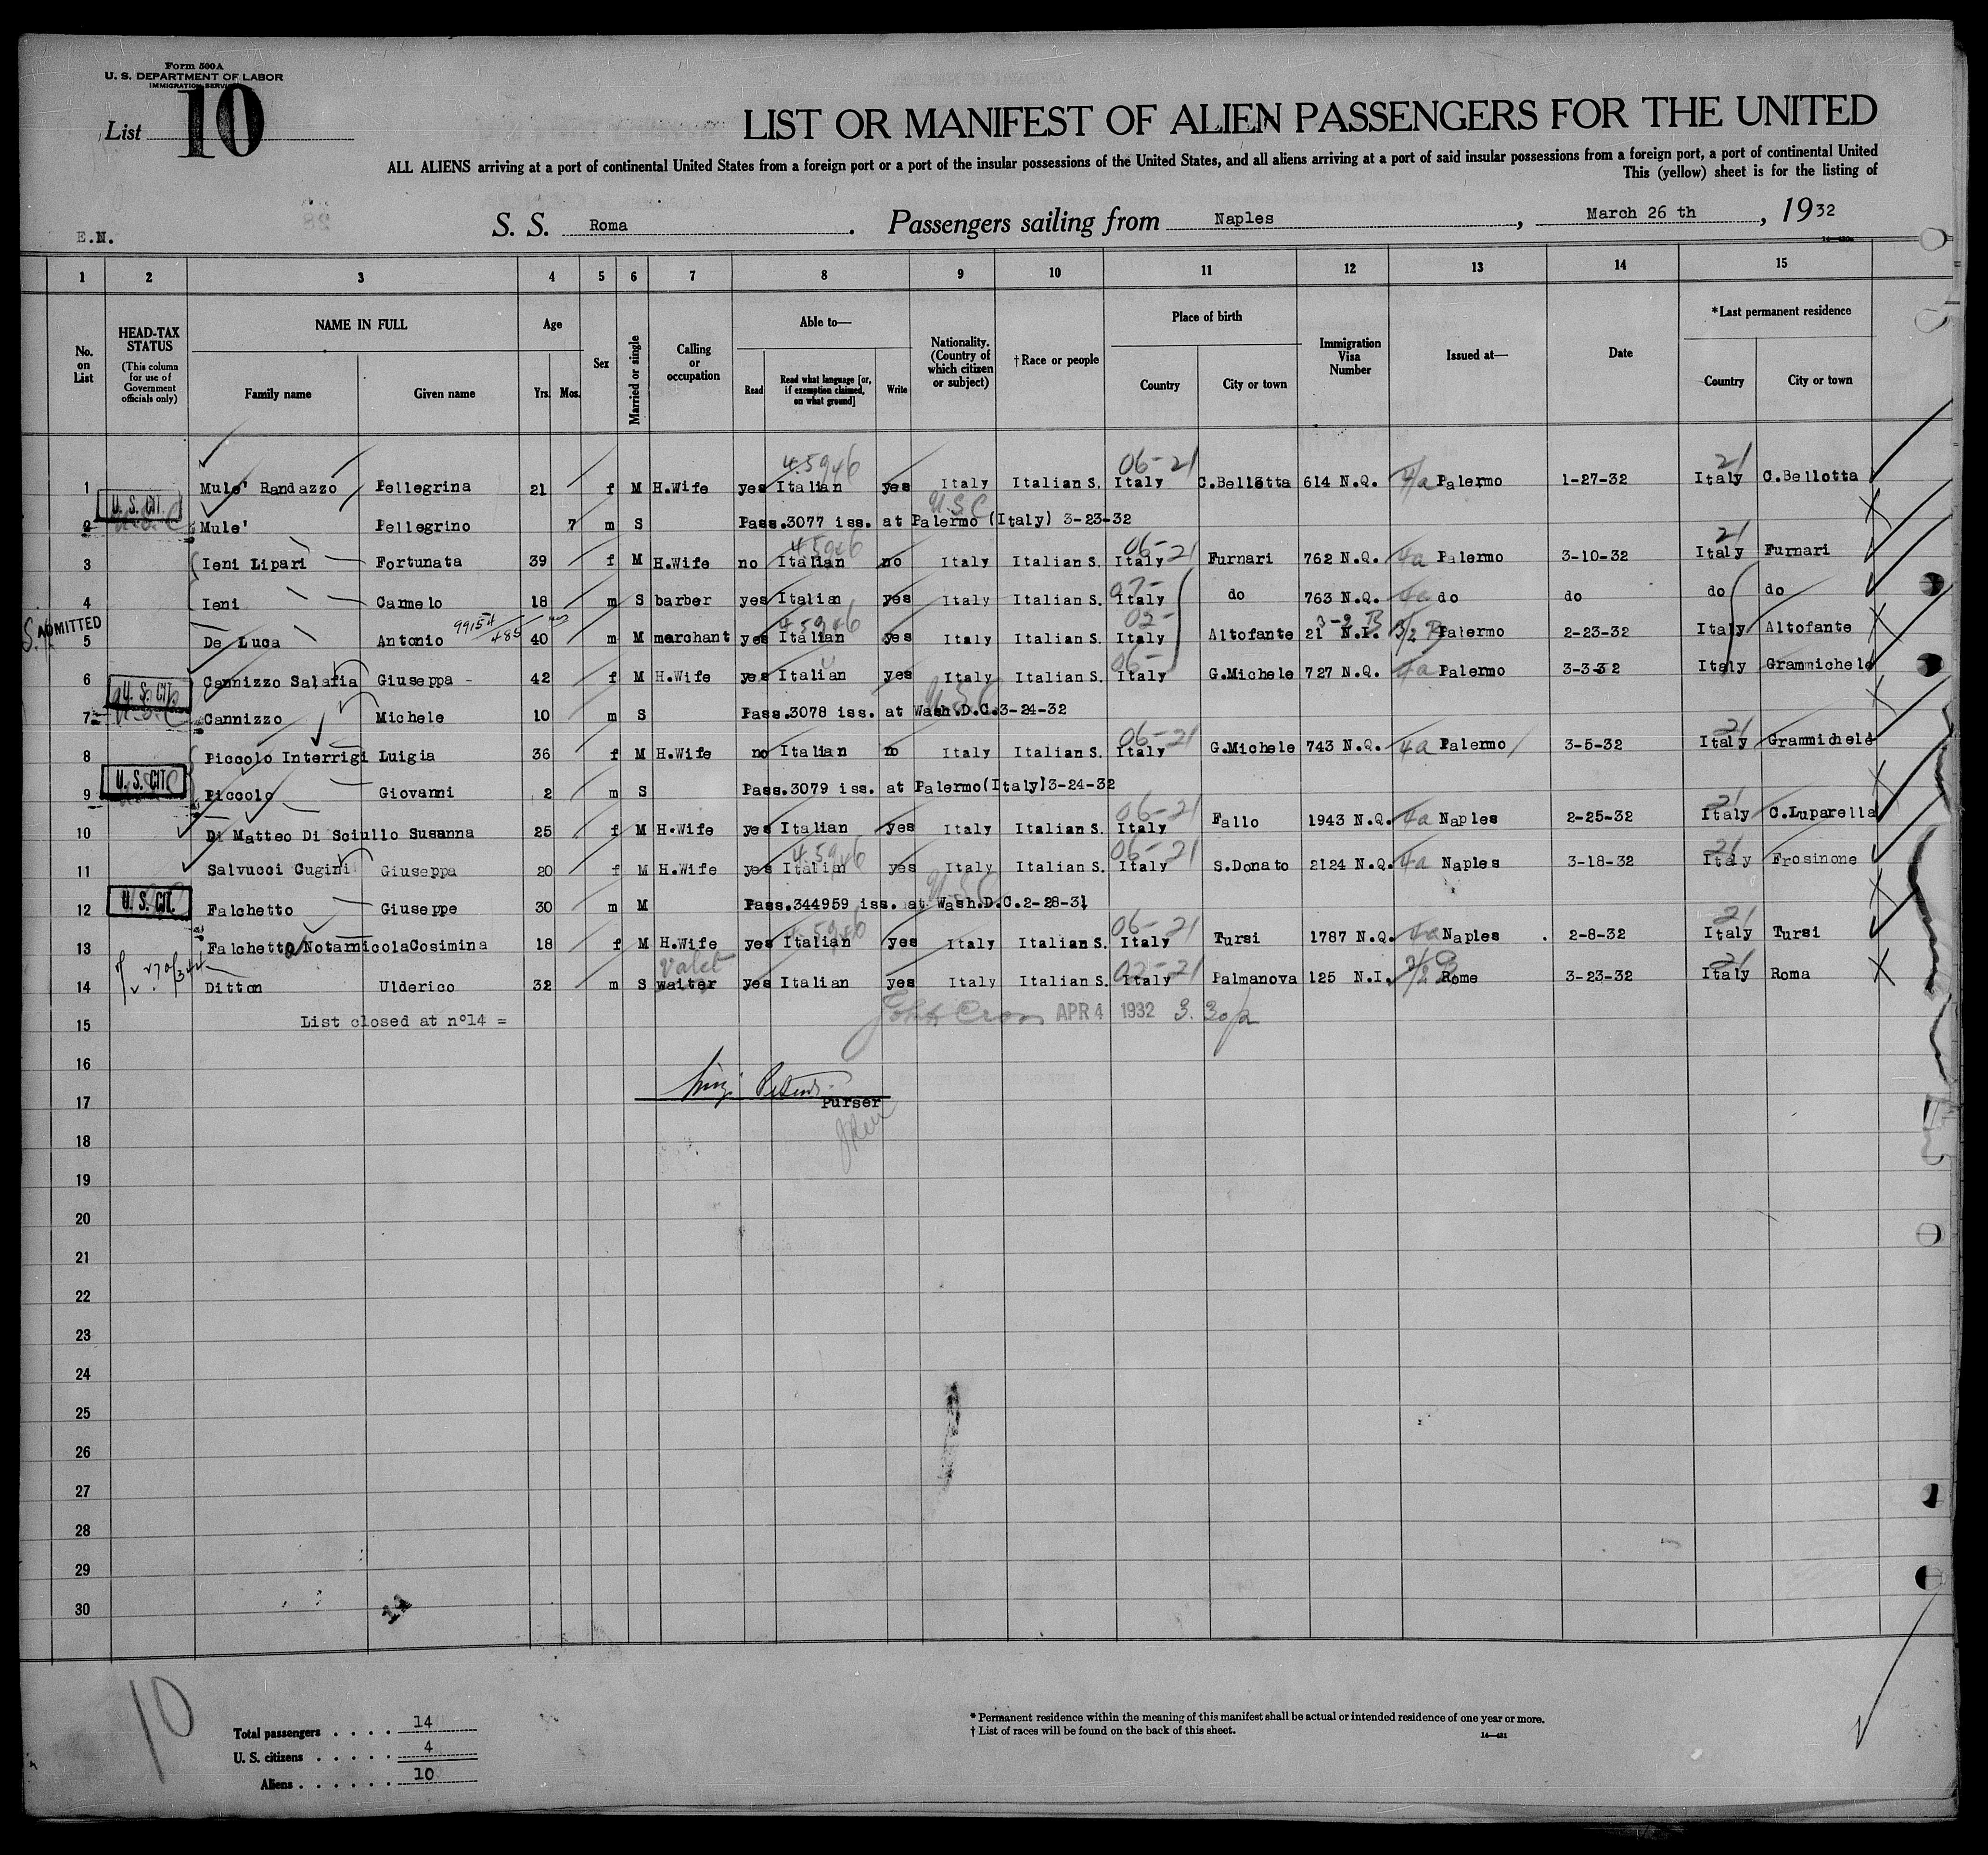 Form 500A
U. S. DEPARTMENT OF LABOR
IMMIGRATION SERVICE
List 10
LIST OR MANIFEST OF ALIEN PASSENGERS FOR THE UNITED
ALL ALIENS arriving at a port of continental United States from a foreign port or a port of the insular possessions of the United States, and all aliens arriving at a port of said insular possessions from a foreign port, a port of continental United
This (yellow) sheet is for the listing of
E.N.
S. S. Roma. Passengers sailing from Naples, March 26 th, 1932
1 2 3 4 5 6 7 8 9 10 11 12 13 14 15
No. on List
HEAD-TAX STATUS
(This column for use of Government officials only)
NAME IN FULL
Family name Given name
Age
Yrs. Mos.
Sex
Married or single
Calling or occupation
Able to—
Read
Read what language [or, if exemption claimed, on what ground]
Write
Nationality. (Country of which citizen or subject)
†Race or people
Place of birth
Country City or town
Immigration Visa Number
Issued at—
Date
*Last permanent residence
Country City or town
45946 06-21 21
1 Mule' Randazzo Pellegrina 21 f M H.Wife yes Italian yes Italy Italian S. Italy C.Bellotta 614 N.Q. 4a Palermo 1-27-32 Italy C.Bellotta
U. S. CIT. U.S.C
2 Mule' Pellegrino 7 m S Pass.3077 iss. at Palermo (Italy) 3-23-32
45946 06-21 21
3 Ieni Lipari Fortunata 39 f M H.Wife no Italian no Italy Italian S. Italy Furnari 762 N.Q. 4a Palermo 3-10-32 Italy Furnari
4 Ieni Carmelo 18 m S barber yes Italian yes Italy Italian S. Italy do 763 N.Q. 4a do do do do
ADMITTED 99154/485 45946 02- 3-2 B
5 De Luca Antonio 40 m M merchant yes Italian yes Italy Italian S. Italy Altofante 21 N.I. 3/2 B Palermo 2-23-32 Italy Altofante
06-
6 Cannizzo Salafia Giuseppa 42 f M H.Wife yes Italian yes Italy Italian S. Italy G.Michele 727 N.Q. 4a Palermo 3-3-32 Italy Grammichele
U. S. CIT. U.S.C
7 Cannizzo Michele 10 m S Pass.3078 iss. at Wash.D.C.3-24-32
06-21 21
8 Piccolo Interrigi Luigia 36 f M H.Wife no Italian no Italy Italian S. Italy G.Michele 743 N.Q. 4a Palermo 3-5-32 Italy Grammichele
U. S. CIT.
9 Piccolo Giovanni 2 m S Pass.3079 iss. at Palermo(Italy)3-24-32
06-21 21
10 Di Matteo Di Sciullo Susanna 25 f M H.Wife yes Italian yes Italy Italian S. Italy Fallo 1943 N.Q. 4a Naples 2-25-32 Italy C.Luparella
45946 06-21 21
11 Salvucci Cugini Giuseppa 20 f M H.Wife yes Italian yes Italy Italian S. Italy S.Donato 2124 N.Q. 4a Naples 3-18-32 Italy Frosinone
U. S. CIT. U.S.C
12 Falchetto Giuseppe 30 m M Pass.344959 iss. at Wash.D.C.2-28-31
45946 06-21 21
13 Falchetto Notarnicola Cosimina 18 f M H.Wife yes Italian yes Italy Italian S. Italy Tursi 1787 N.Q. 4a Naples 2-8-32 Italy Tursi
valet 02-21 21
14 Ditton Ulderico 32 m S waiter yes Italian yes Italy Italian S. Italy Palmanova 125 N.I. 3/2 B Rome 3-23-32 Italy Roma
15 List closed at n°14 = APR 4 1932 3.30p
16
17 Purser
18
19
20
21
22
23
24
25
26
27
28
29
30
10
Total passengers . . . . 14
U. S. citizens . . . . . 4
Aliens . . . . . . 10
* Permanent residence within the meaning of this manifest shall be actual or intended residence of one year or more.
† List of races will be found on the back of this sheet.